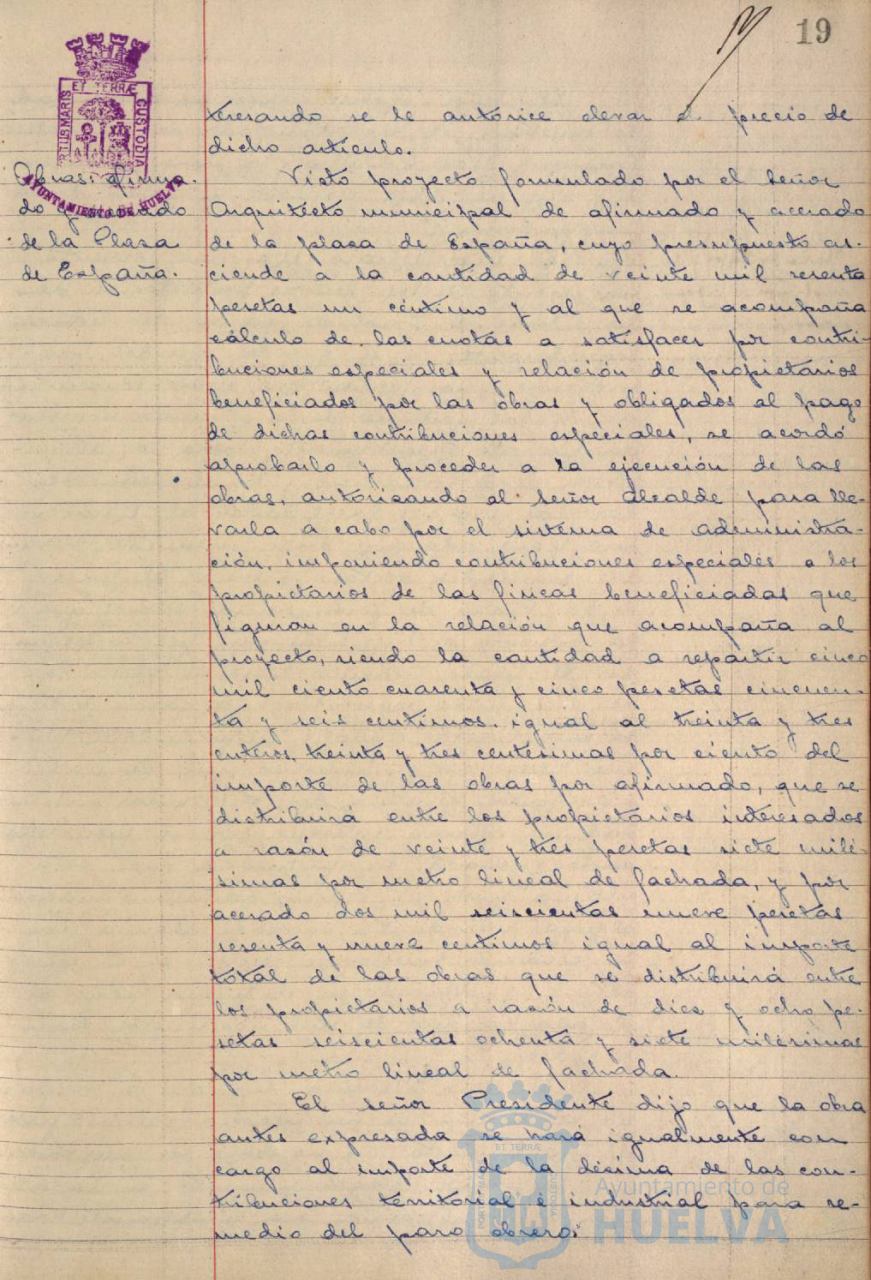 19
teresando se le autorice elevar el precio de
dicho artículo.
Obras: afirma-
do y acerado
de la Plaza
de España.
Visto proyecto formulado por el Señor
Arquitecto municipal de afirmado y acerado
de la plaza de España, cuyo presupuesto as-
ciende a la cantidad de veinte mil sesenta
pesetas un céntimo y al que se acompaña
cálculo de las cuotas a satisfacer por contri-
buciones especiales y relación de propietarios
beneficiados por las obras y obligados al pago
de dichas contribuciones especiales, se acordó
aprobarlo y proceder a la ejecución de las
obras, autorizando al Señor Alcalde para lle-
varla a cabo por el sistema de administra-
ción, imponiendo contribuciones especiales a los
propietarios de las fincas beneficiadas que
figuran en la relación que acompaña al
proyecto, siendo la cantidad a repartir cinco
mil ciento cuarenta y cinco pesetas cincuen-
ta y seis centimos, igual al treinta y tres
enteros treinta y tres centésimas por ciento del
importe de las obras por afirmado, que se
distribuirá entre los propietarios interesados
a razón de veinte y tres pesetas siete milé-
simas por metro lineal de fachada, y por
acerado dos mil seiscientas nueve pesetas
sesenta y nueve centimos igual al importe
total de las obras que se distribuirá entre
los propietarios a razón de diez y ocho pe-
setas seiscientas ochenta y siete milésimas
por metro lineal de fachada.
El Señor Presidente dijo que la obra
antes expresada se hará igualmente con
cargo al importe de la décima de las con-
tribuciones territorial é industrial para re-
medio del paro obrero.
PORTUS MARIS ET TERRÆ CUSTODIA
AYUNTAMIENTO DE HUELVA
Ayuntamiento de
HUELVA